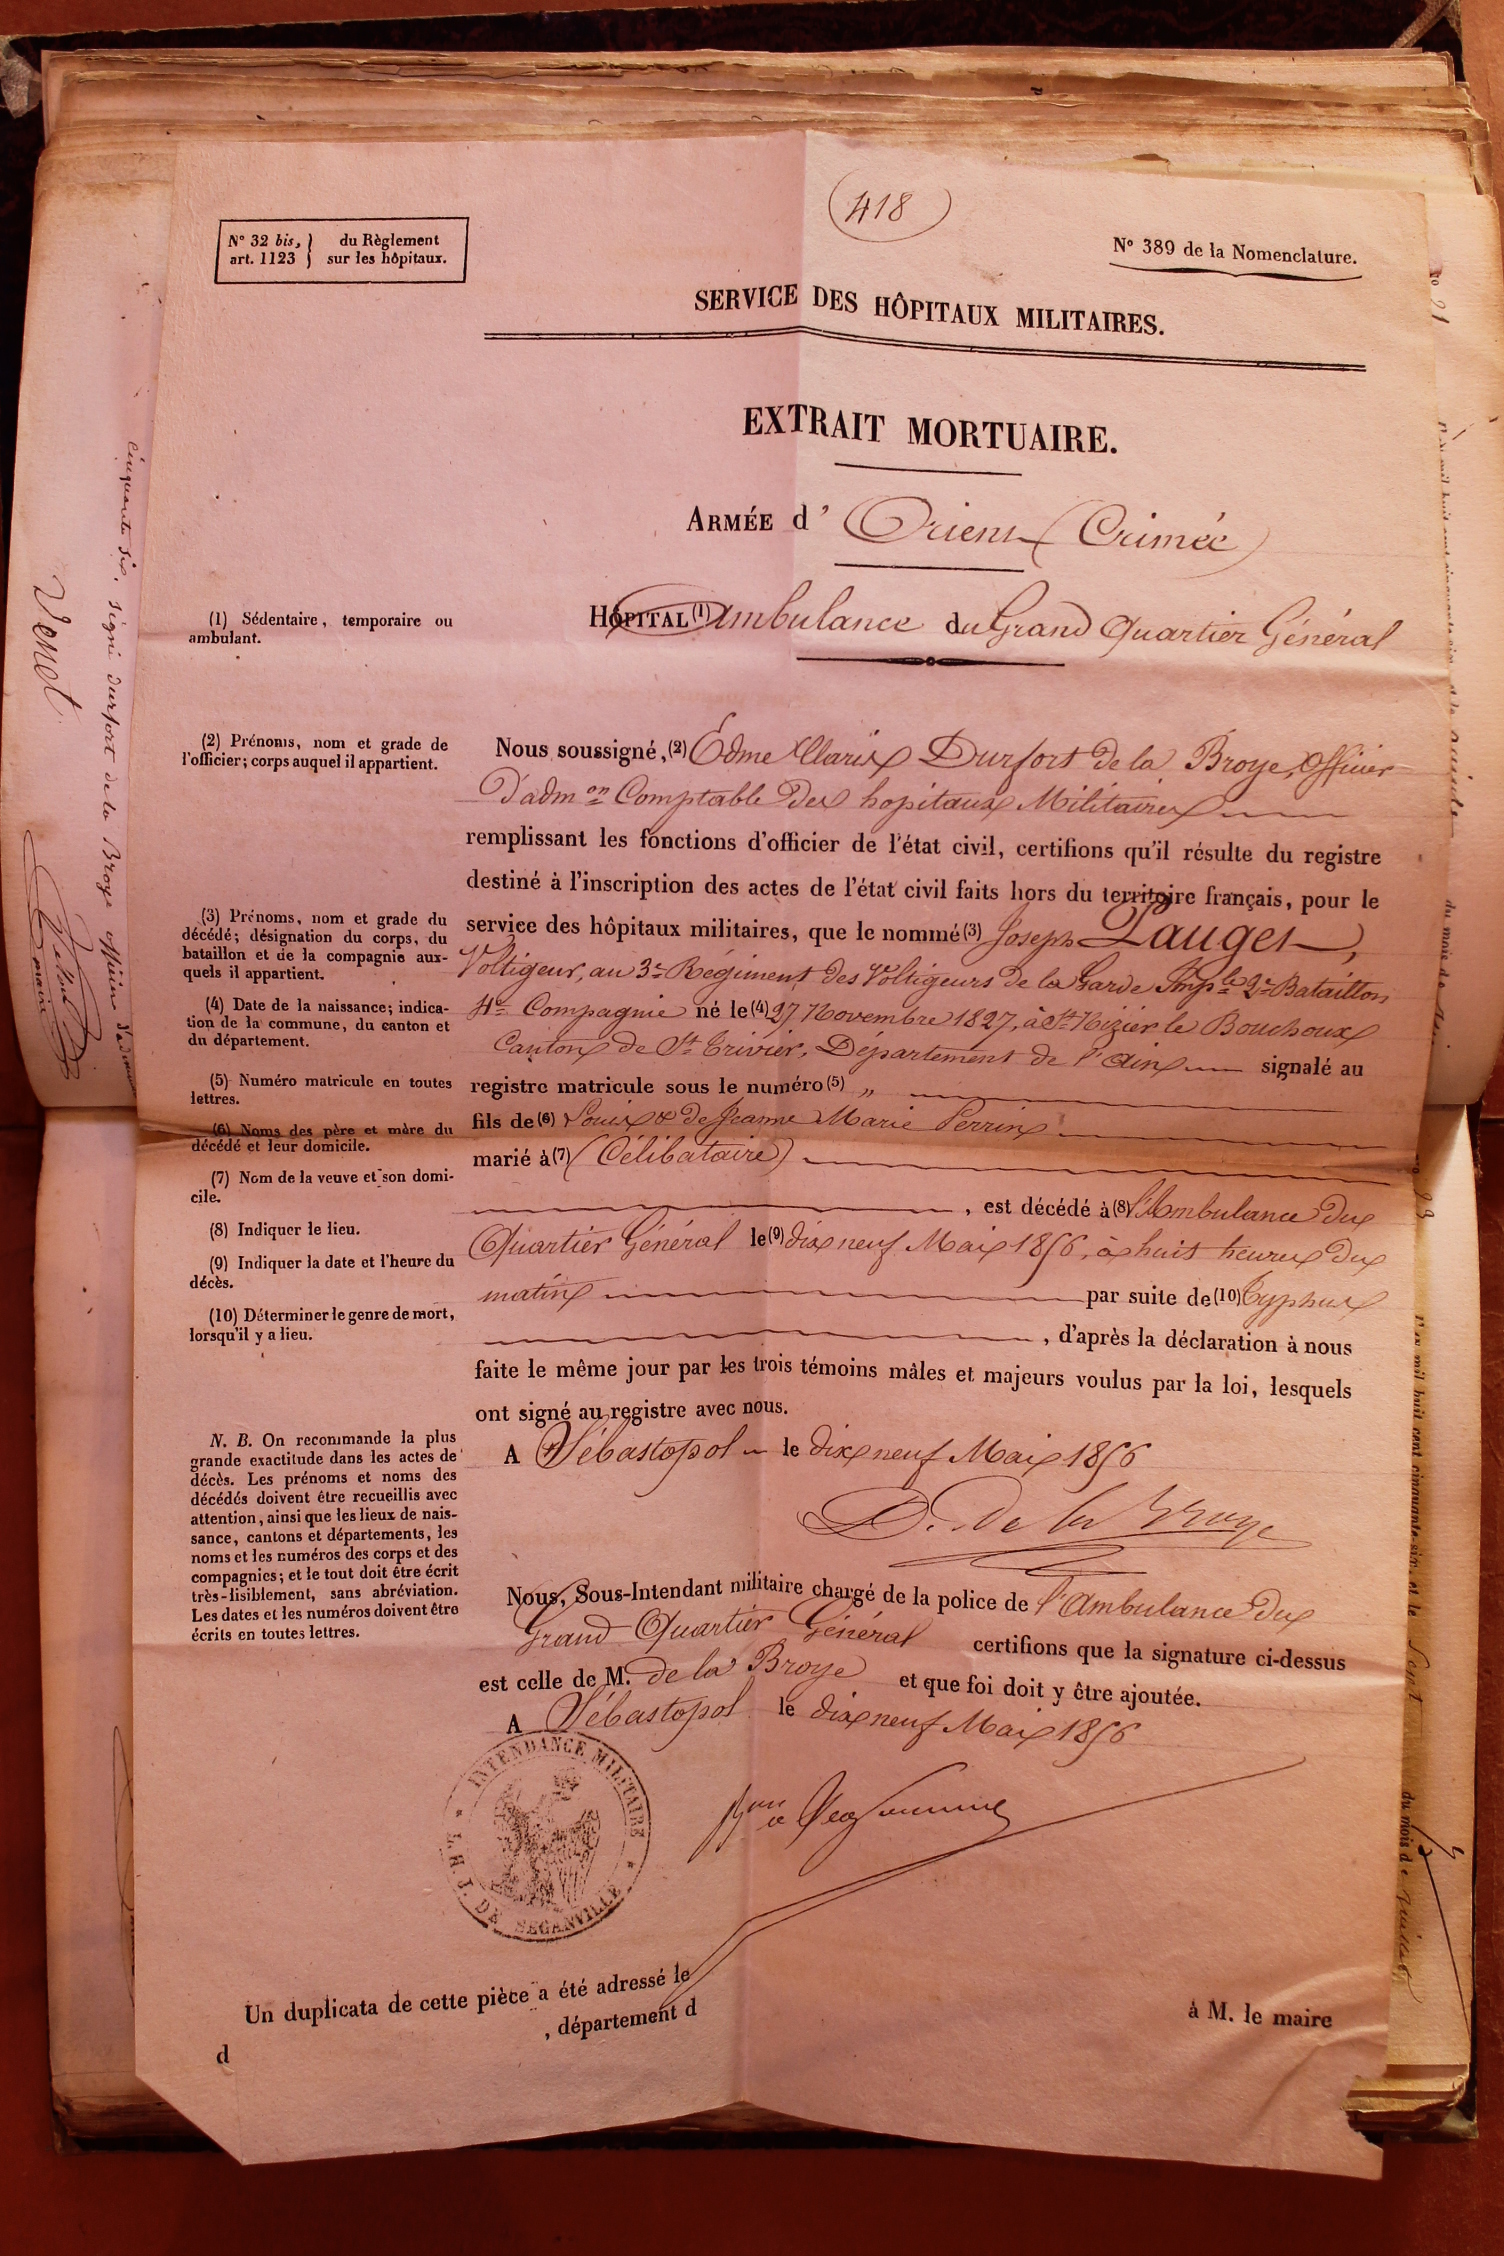 418
N° 32 bis, } du Règlement
art. 1123 } sur les hôpitaux.
N° 389 de la Nomenclature.
SERVICE DES HÔPITAUX MILITAIRES.
EXTRAIT MORTUAIRE.
ARMÉE d' Orient (Crimée)
(1) Sédentaire, temporaire ou
ambulant.
HÔPITAL (1) Ambulance du Grand Quartier Général
(2) Prénoms, nom et grade de
l'officier; corps auquel il appartient.
Nous soussigné, (2) Edme Durfort de la Broye, Officier
d'adm on Comptable des hopitaux Militaires
remplissant les fonctions d'officier de l'état civil, certifions qu'il résulte du registre
destiné à l'inscription des actes de l'état civil faits hors du territoire français, pour le
service des hôpitaux militaires, que le nommé (3) Joseph Pauget,
Voltigeur, au 3e Régiment des Voltigeurs de la Garde Imp le 2e Bataillon
4e Compagnie né le (4) 27 Novembre 1827, à St Nizier le Bouchoux
Canton de St Trivier, Département de l'Ain signalé au
registre matricule sous le numéro (5) "
fils de (6) Louis & de Jeanne Marie Perrin
marié à (7) (Célibataire)
, est décédé à (8) l'Ambulance du
Quartier Général le (9) dix neuf Mai 1856, à huit heures du
matin par suite de (10) Typhus
, d'après la déclaration à nous
faite le même jour par les trois témoins mâles et majeurs voulus par la loi, lesquels
ont signé au registre avec nous.
A Sébastopol le dix neuf Mai 1856
D. de la Broye
(3) Prénoms, nom et grade du
décédé; désignation du corps, du
bataillon et de la compagnie aux-
quels il appartient.
(4) Date de la naissance; indica-
tion de la commune, du canton et
du département.
(5) Numéro matricule en toutes
lettres.
(6) Noms des père et mère du
décédé et leur domicile.
(7) Nom de la veuve et son domi-
cile.
(8) Indiquer le lieu.
(9) Indiquer la date et l'heure du
décès.
(10) Déterminer le genre de mort,
lorsqu'il y a lieu.
N. B. On recommande la plus
grande exactitude dans les actes de
décès. Les prénoms et noms des
décédés doivent être recueillis avec
attention, ainsi que les lieux de nais-
sance, cantons et départements, les
noms et les numéros des corps et des
compagnies; et le tout doit être écrit
très-lisiblement, sans abréviation.
Les dates et les numéros doivent être
écrits en toutes lettres.
Nous, Sous-Intendant militaire chargé de la police de l'Ambulance du
Grand Quartier Général certifions que la signature ci-dessus
est celle de M. de la Broye et que foi doit y être ajoutée.
A Sébastopol le dix neuf Mai 1856
INTENDANCE MILITAIRE
DE SEGANVILLE
Un duplicata de cette pièce a été adressé le
à M. le maire
d , département d
cinquante six, signé durfort de la Broye officier d'adm
Venet